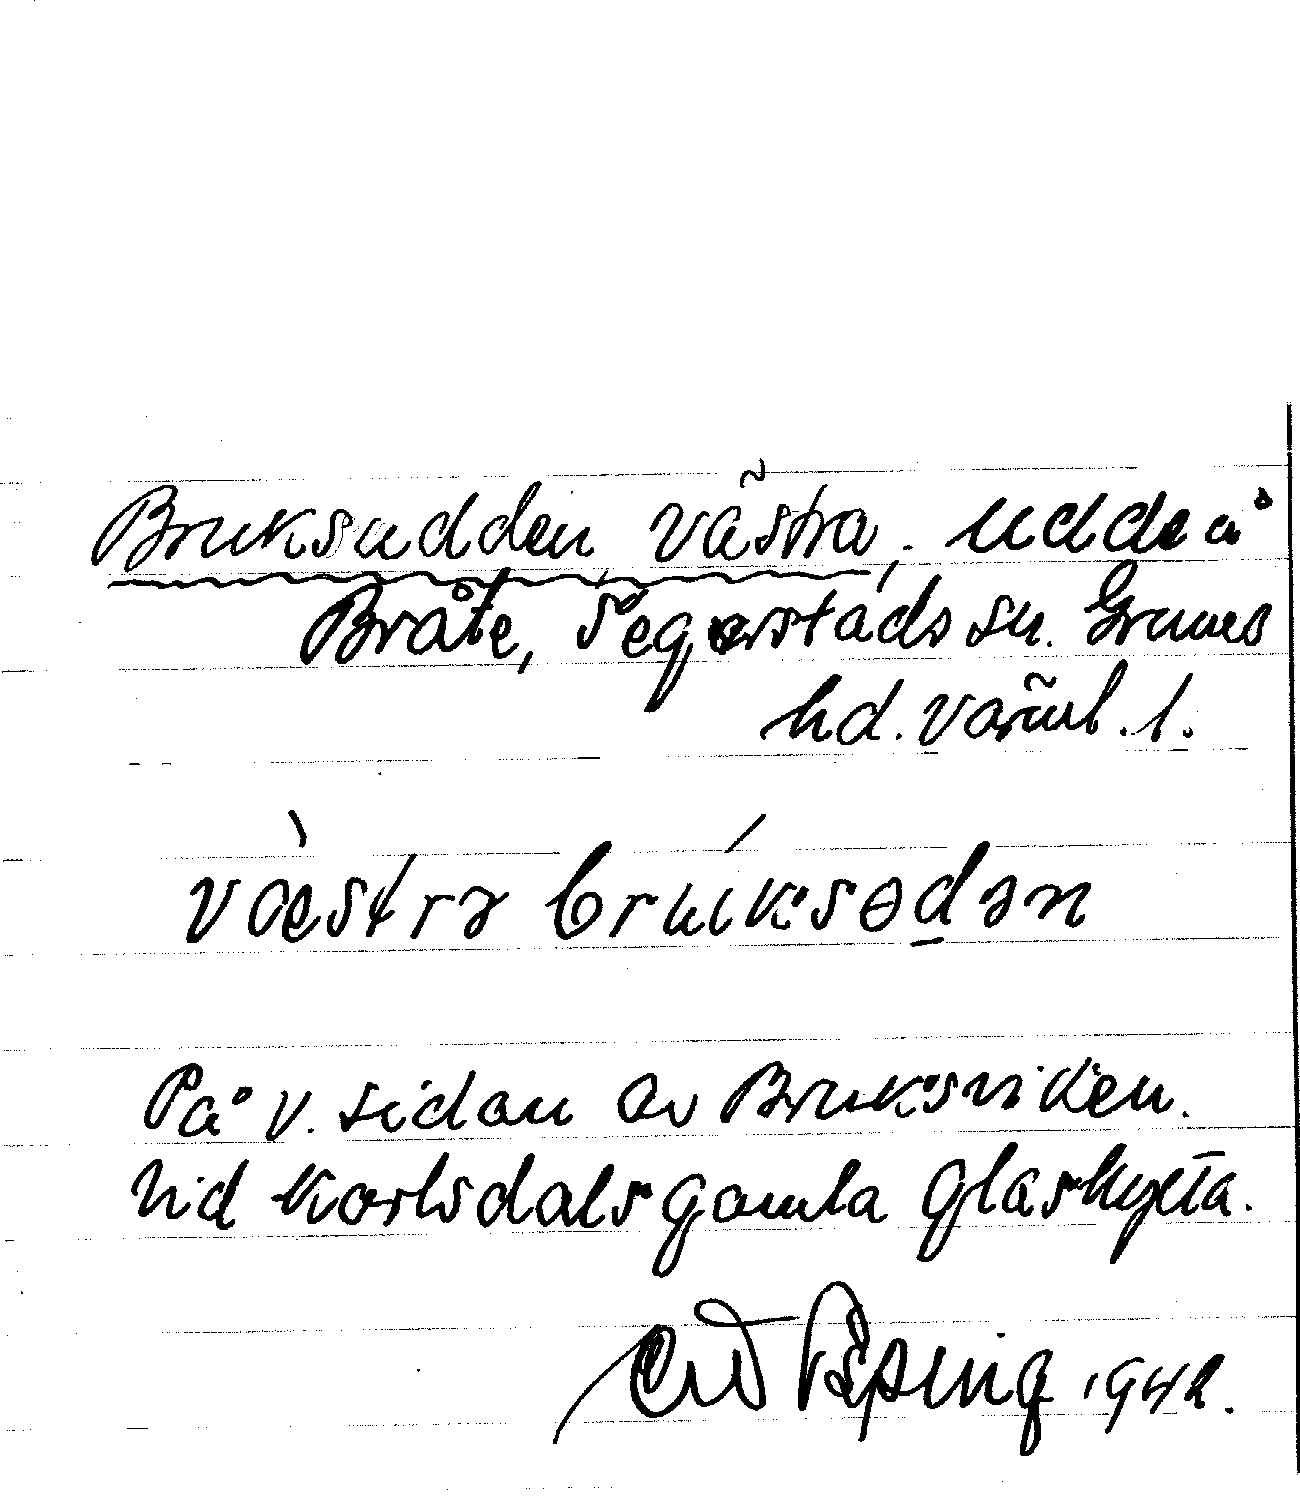 Bruksudden, västra, . Udde å
Bråte, Segerstads sn. Grums
hd. Värml. l.
væ̀stra brúksɵdan
På v. sidan av Bruksviken.
Vid Karlsdals gamla glashytta.
1942.